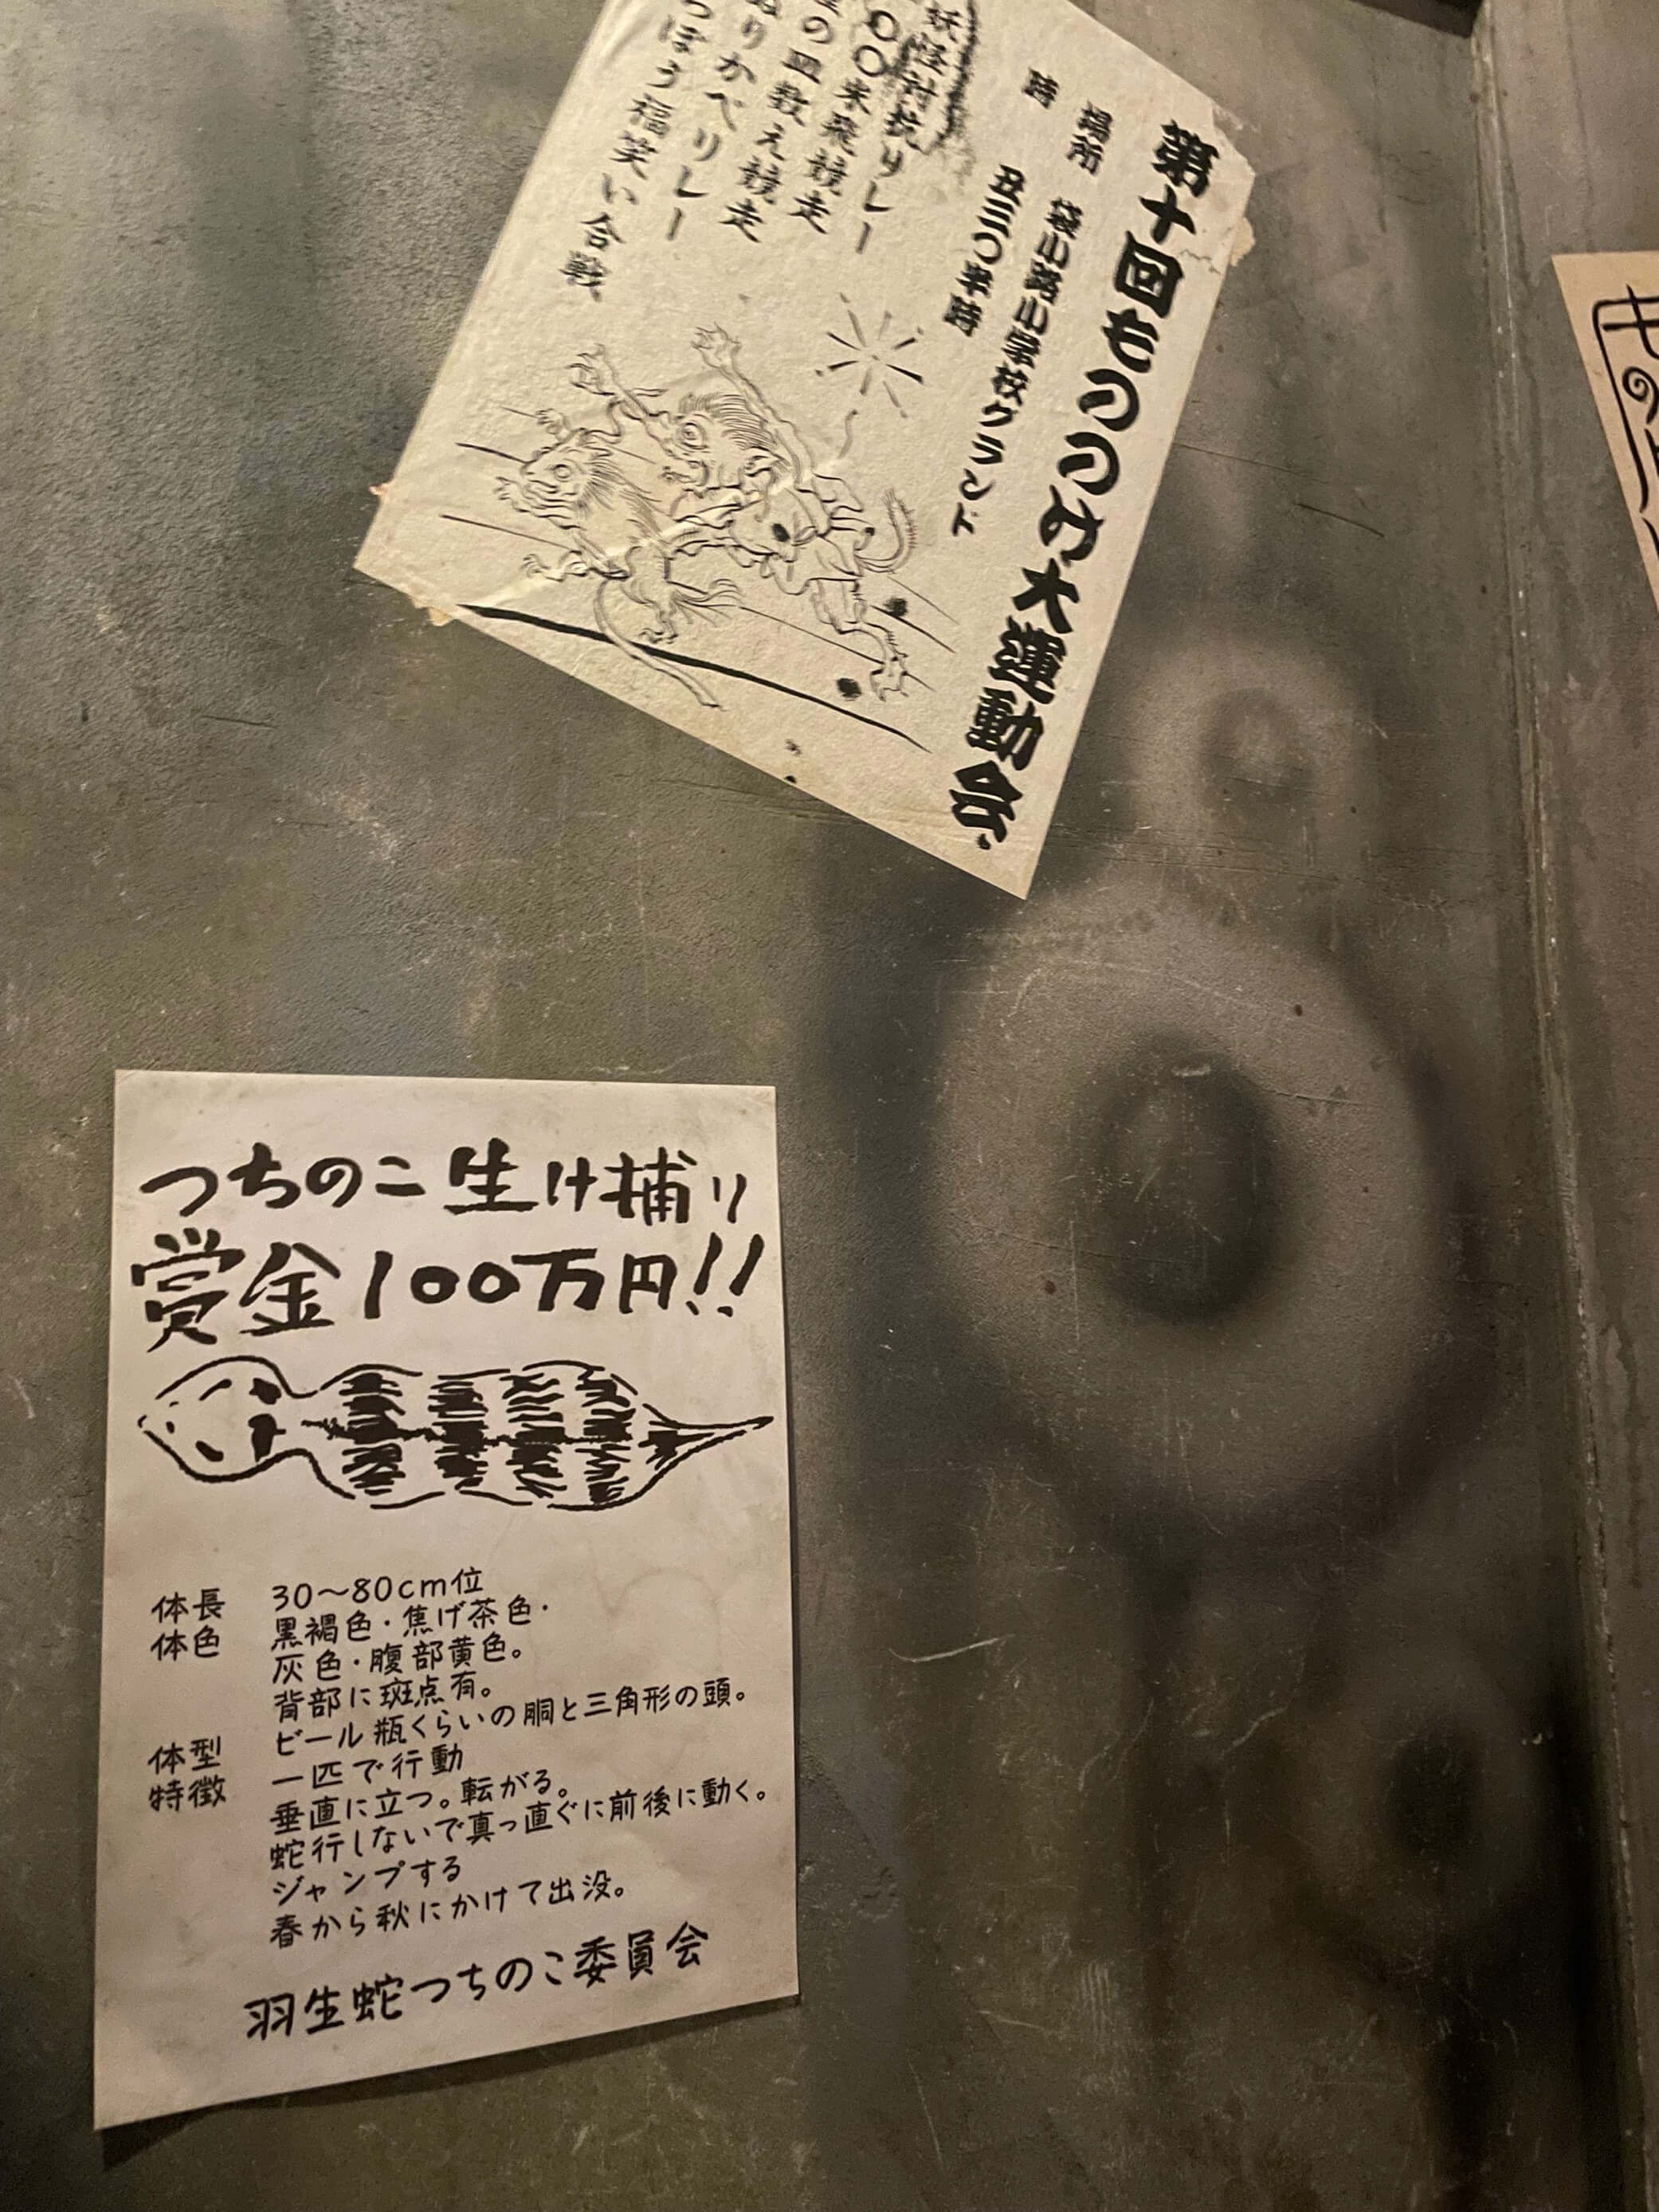 第十回もののけ大運動会
場所 袋小路小学校グランド
時 丑三〇半時
妖怪対抗リレー
〇〇米飛競走
の皿数え競走
ぬりかべリレー
っぽう福笑い合戦
つちのこ生け捕り
賞金100万円!!
体長 30〜80cm位
体色 黒褐色・焦げ茶色・
灰色・腹部黄色。
背部に斑点有。
体型 ビール瓶くらいの胴と三角形の頭。
特徴 一匹で行動
垂直に立つ。転がる。
蛇行しないで真っ直ぐに前後に動く。
ジャンプする
春から秋にかけて出没。
羽生蛇つちのこ委員会
もの